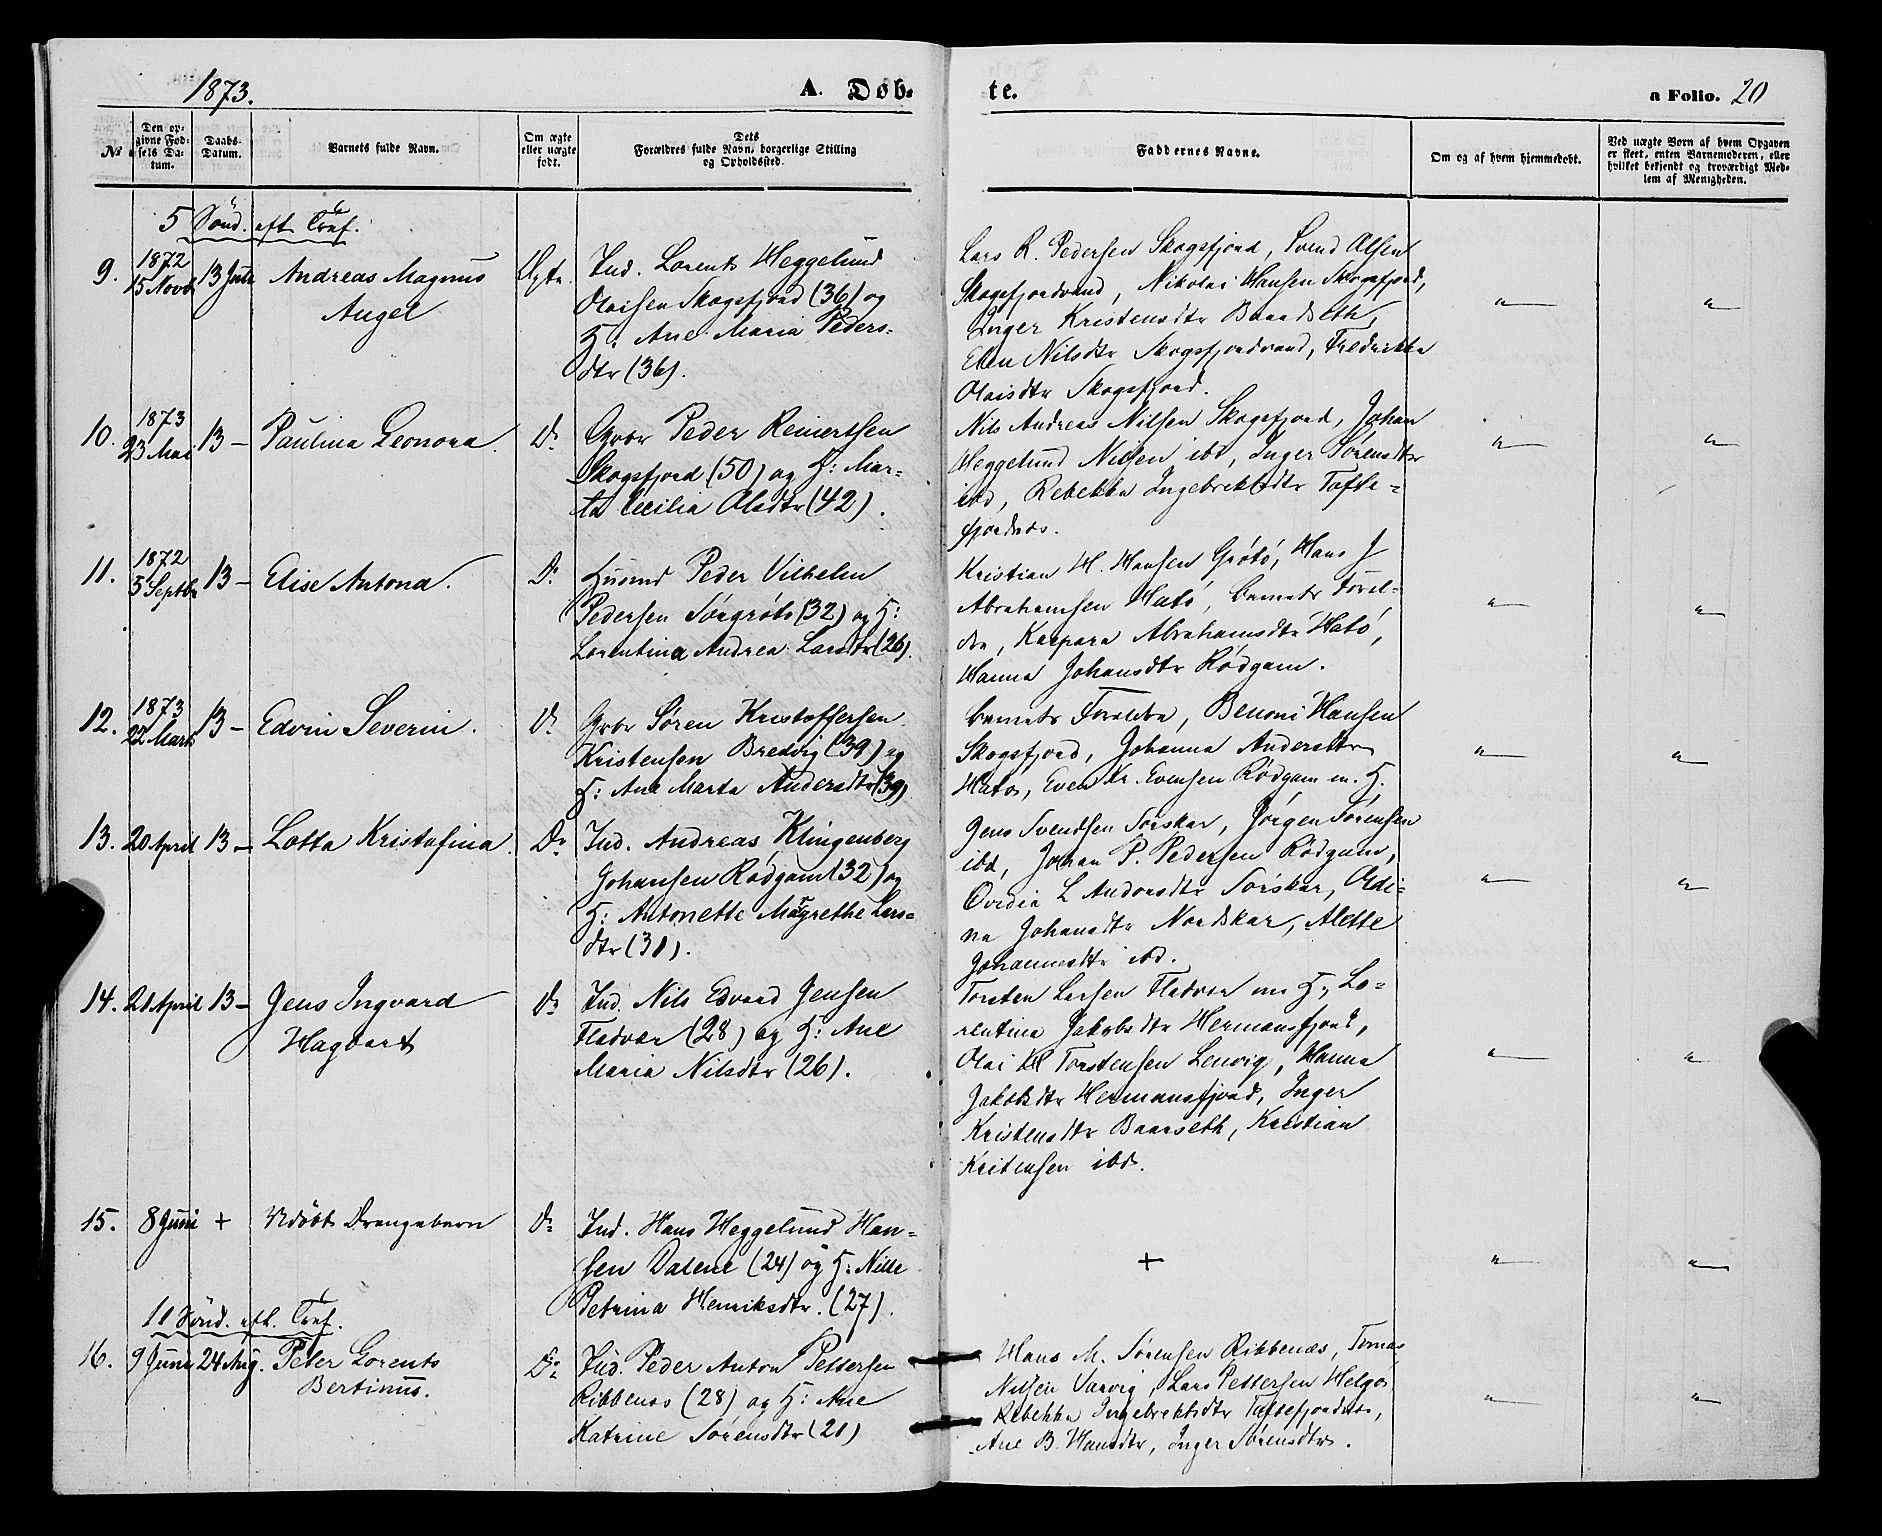 1873.
A. Døb-
te.
a Folio. 20
№
Den op-
givne Fød-
sels Da-
tum.
Daabs-
Datum.
Barnets fulde Navn.
Om ægte
eller uægte
født.
Dets
Forældres fulde Navn, borgerlige Stilling
og Opholdssted.
Faddernes Navne.
Om og af hvem hjemmedøbt.
Ved uægte Børn af hvem Opgaven
er skeet, enten Barnemoderen, eller
hvilket bekjendt og troværdigt Med-
lem af Menigheden.
5 Sønd. eft Tref.
9.
1872
15 Novb
13 Juli
Andreas Magnus
Angel
Ægte
Ind. Lorents Heggelund
Olaisen Skogsfjord (36) og
H: Ane Maria Peders-
dtr (36).
Lars R. Pedersen Skogsfjord, Svend Olsen
Skogsfjordvand, Nikolai Hansen Skogsfjord,
Inger Kristensdtr Baardseth,
Elen Nilsdtr Skogsfjordvand, Fredrikke
Olaisdtr Skogsfjord.
"
"
10.
1873
23 Mai
13 –
Paulina Leonora
Do
Gbr Peder Reinertsen
Skogsfjord (50) og H: Mar-
ta Cecilia Olsdtr (42).
Nils Andreas Nilsen Skogsfjord, Johan
Heggelund Nilsen ibd, Inger Sørensdtr
ibd, Rebekka Ingebrektsdtr Tofte-
fjordnæs.
"
"
11.
1872
5 Septbr
13 –
Elise Antona.
Do
Husmd Peder Vilhelm
Pedersen Sørgrøtø (32) og H:
Lorentina Andrea Larsdtr (26).
Kristian H. Hansen Grøtø, Hans J
Abrahamsen Hatø, barnets Foræl-
dre, Kaspara Abrahamsdtr Hatø,
Hanna Johansdtr Rødgam.
"
"
12.
1873
22 Marts
13 –
Edvin Severin.
Do
Gbr Søren Kristoffersen
Kristensen Bredvig (39) og
H: Ane Marta Andersdtr (39)
barnets Forældre, Benoni Hansen
Skogsfjord, Johanna Andersdtr
Hatø, Even Kr. Evensen Rødgam m. H.
"
"
13.
20 April
13 –
Lotta Kristofina.
Do
Ind. Andreas Klingenberg
Johansen Rødgam (32) og
H: Antonette Magrethe Lars-
dtr (31).
Jens Svendsen Sørskar, Jørgen Sørensen
ibd, Johan P. Pedersen Rødgam,
Ovedia L Andorsdtr Sørskar, Oldi-
na Johansdtr Nordskar, Alette
Johannesdtr ibd.
"
"
14.
21 April
13 –
Jens Ingvard
Hagbart
Do
Ind. Nils Edvard Jensen
Fladvær (28) og H: Ane
Maria Nilsdtr (26).
Torsten Larsen Fladvær m H., Lo-
rentina Jakobsdtr Hermansfjord,
Olai M Torstensen Lenvig, Hanna
Jakobsdtr Hermansfjord, Inger
Kristensdtr Baarseth, Kristian
Kritensen ibd.
"
"
15.
8 Juni
+
Udøbt Drengebarn
Do
Ind. Hans Heggelund Han-
sen Dalene (24) og H: Nille
Petrina Henriksdtr. (27).
+
"
"
11 Sønd. eft. Tref.
16.
9 Juni
24 Aug.
Peter Lorents
Bertinus.
Do
Ind. Peder Anton Pettersen
Ribbenæs (28) og H: Ane
Katrine Sørensdtr (21)
Hans M. Sørensen Ribbenæs, Tomas
Nilsen Vanvig, Lars Pettersen Helgø
Rebekka Ingebrektsdtr Toftefjordnæs,
Ane B. Hansdtr, Inger Sørensdtr.
"
"